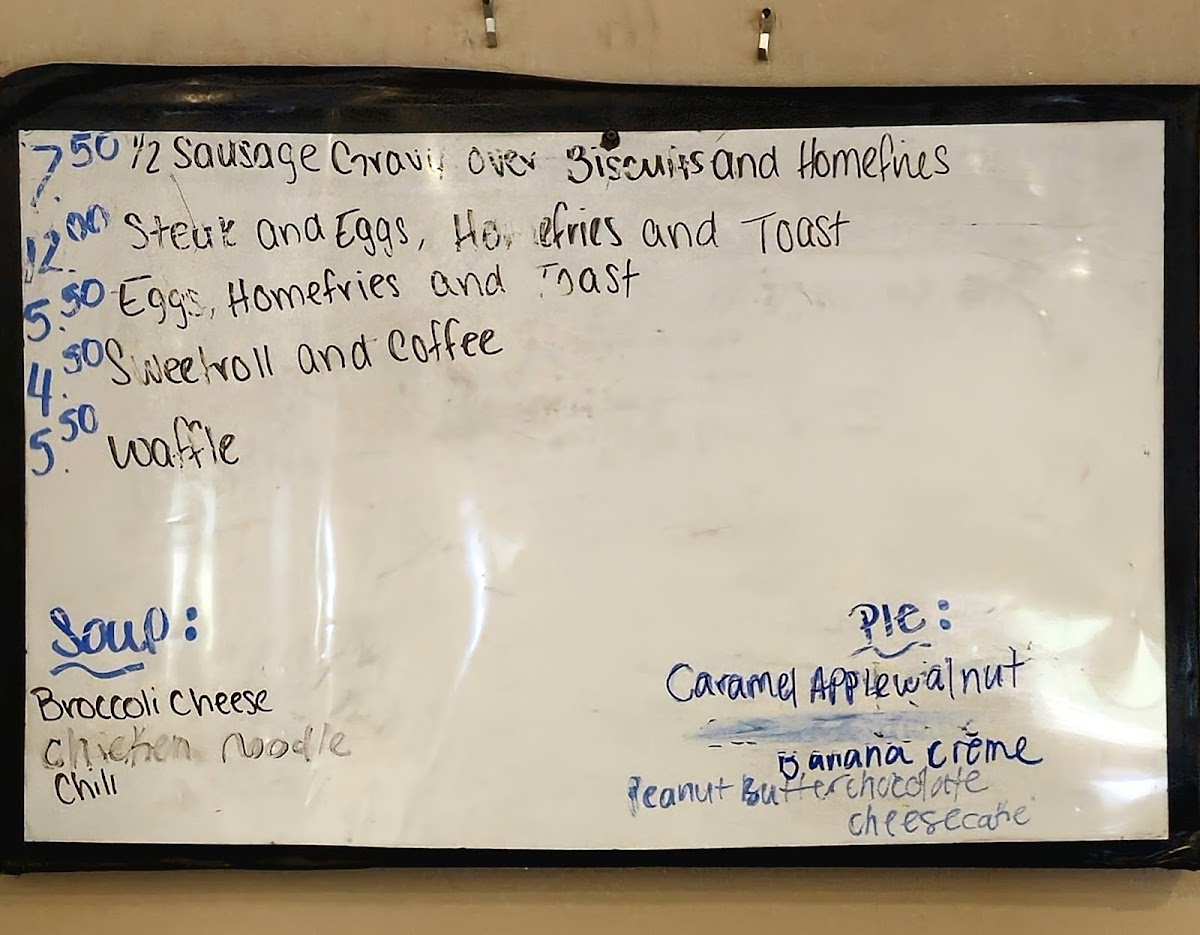 7.50 1/2 Sausage Gravy over Biscuits and Homefries
12.00 Steak and Eggs, Homefries and Toast
5.50 Eggs, Homefries and Toast
4.50 Sweetroll and Coffee
5.50 Waffle
Soup:
Broccoli Cheese
Chicken Noodle
Chili
Pie:
Caramel Apple walnut
Banana crème
Peanut Butter chocolate
cheesecake